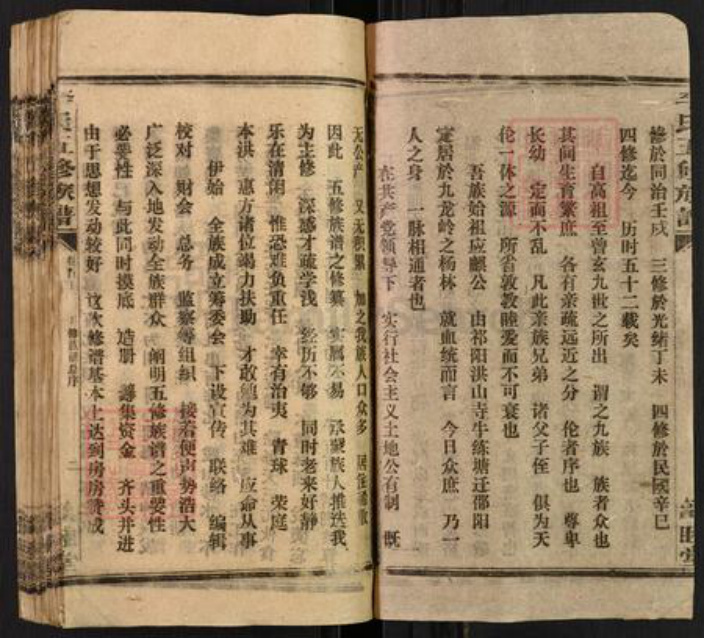 修於同治壬戌 三修於光緒丁未 四修於民國辛巳
四修迄今 历时五十二载矣
自高祖至曾玄九世之所出 谓之九族 族者众也
其间生育繁庶 各有亲疏远近之分 伦者序也 尊卑
长幼 定而不乱 凡此亲族兄弟 诸父子侄 俱为天
伦一体之源 所省敦敦睦爱而不可衰也
吾族始祖应麒公 由祁阳洪山寺牛练塘迁邵阳
定居於九龙岭之杨林 就血统而言 今日众庶 乃一
人之身 一脉相通者也
在共产党领导下 实行社会主义土地公有制 既
无公产 又无积累 加之我族人口众多 居住
因此 五修族谱之修纂 实属不易 承蒙族人推选我
为主修 深感才疏学浅 经历不够 同时老来好静
乐在清闲 惟恐难负重任 幸有治夷 青球 荣庭
本洪 惠方诸位竭力扶助 才敢勉为其难 应命从事
伊始 全族成立筹委会 下设宣传 联络 编辑
校对 财会 总务 监察等组织 接着便声势浩大
广泛深入地发动全族群众 阐明五修族谱之重要性
必要性 与此同时摸底 造册 筹集资金 齐头并进
由于思想发动较好 这次修谱基本上达到房房赞成
五修族谱
序
二